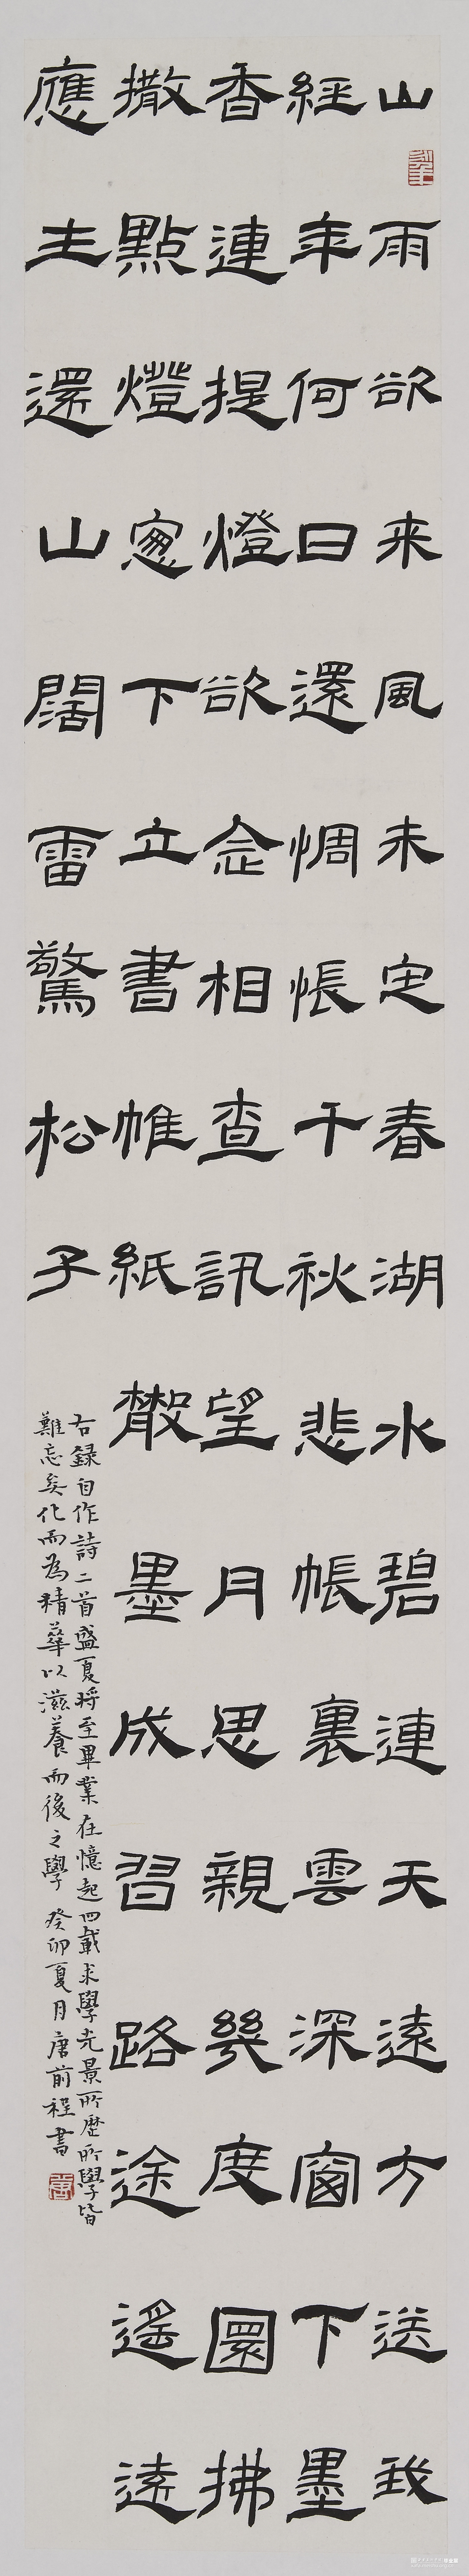 山雨欲来風未定春湖水碧連天遠方送我
經年何日還惆悵千秋悲帳裏雲深窗下墨
香連提燈欲念相查訊望月思親幾度圜拂
撒點燈窗下立書帷紙散墨成習路途遙遠
應主還山闊雷驚松子
右錄自作詩二首盛夏將至畢業在憶起四載求學光景所歷所學皆
難忘矣化而為精華以滋養而後之學癸卯夏月唐前程書